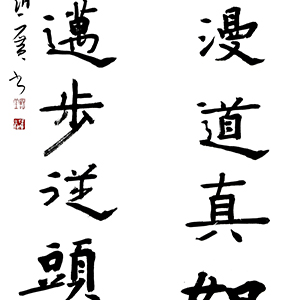 漫道真如
邁步從頭